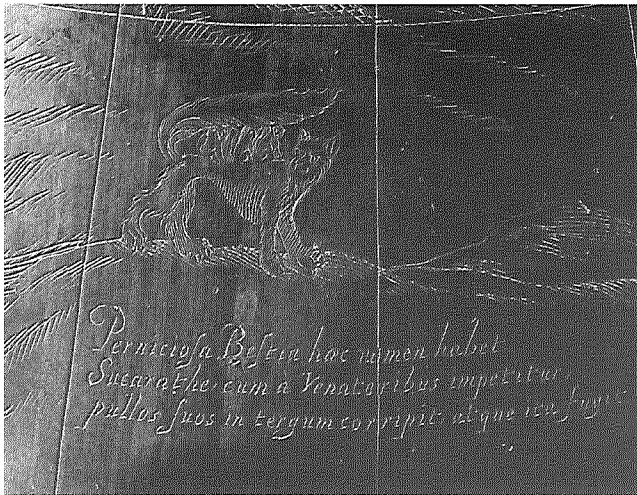 Perniciosa Bestia hæc nomen habet
Sucarathe: cum à Venatoribus impetitur,
pullos suos in tergum corripit atque ita fugit